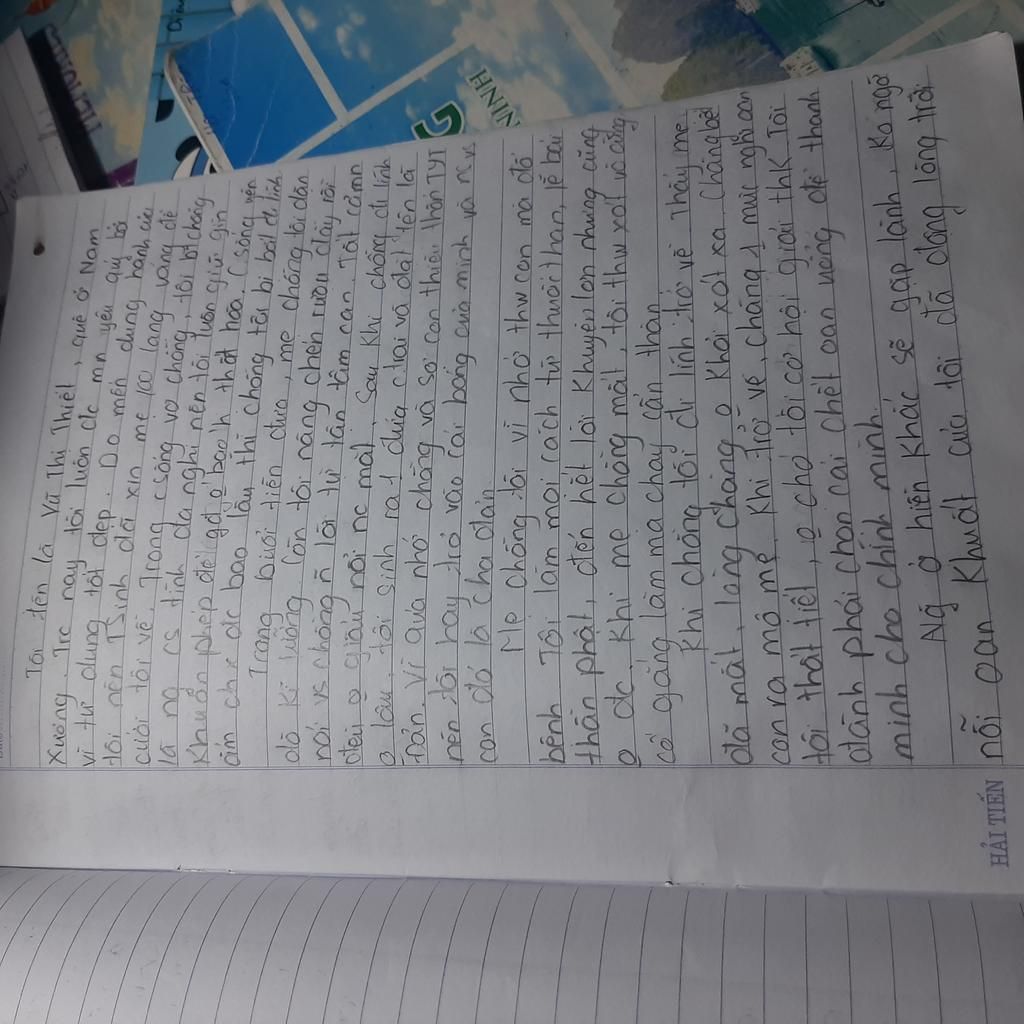 Tôi tên là Vũ Thị Thiết, quê ở Nam
Xương. Trc nay tôi luôn đc mn yêu quý bó
vì tư dung tốt đẹp. Do mến dung hạnh của
tôi nên TSinh đã xin mẹ 100 lạng vàng để
cưới tôi về. Trong csống vợ chồng, tôi bt chồng
là ng cs tính đa nghi nên tôi luôn giữ gìn
khuôn phép để gđ o bao h thất hòa. Csống yên
ấm ch x đc bao lâu thì chồng tôi bị bắt đi lính
Trong buổi tiễn đưa, mẹ chồng tôi dặn
dò kĩ lưỡng. Còn tôi nâng chén rượu đầy rồi
nói vs chàng n lời từ tận tâm can. Tất cả mn
đều o giấu nổi nc mắt. Sau khi chồng đi lính
o lâu, tôi sinh ra 1 đứa ctrai và đặt tên là
Đản. Vì quá nhớ chồng và sợ con thiếu thốn TYT
nên tôi hay trỏ vào cái bóng của mình và ns vs
con đó là cha đản
Mẹ chồng tôi vì nhớ thw con mà đổ
bệnh. Tôi làm mọi cách từ thuốc than, lễ bái
thần phật, đến hết lời khuyên lơn nhưng cũng
o đc. Khi mẹ chồng mất, tôi thw xót vô cùng
cố gắng làm ma chay cẩn thận
Khi chồng tôi đi lính trở về thấy mẹ
đã mất, lòng chàng o khỏi xót xa. Chàng bế
con ra mộ mẹ. Khi trở về, chàng 1 mực nghi oan
tôi thất tiết, o cho tôi cơ hội giải thk. Tôi
đành phải chọn cái chết oan uổng để thanh
minh cho chính mình.
Ng ở hiền khác sẽ gặp lành, ko ngờ
nỗi oan khuất của tôi đã động lòng trời
HẢI TIẾN
NINH